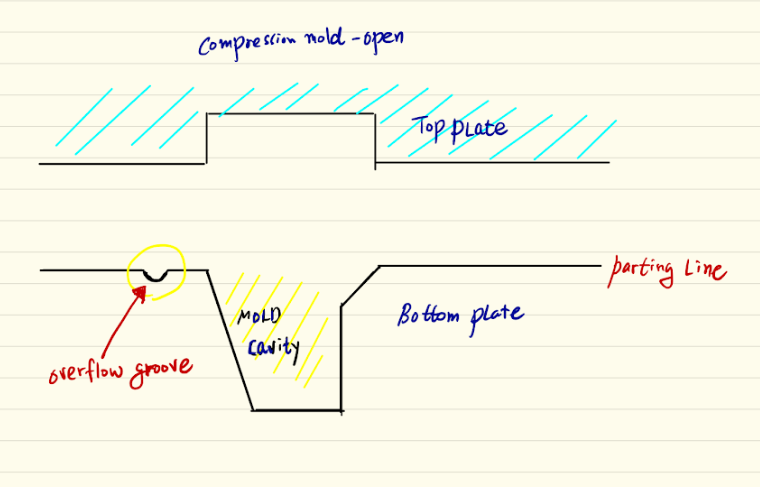 Compression mold-open
Top plate
parting Line
MOLD
cavity
Bottom plate
overflow groove